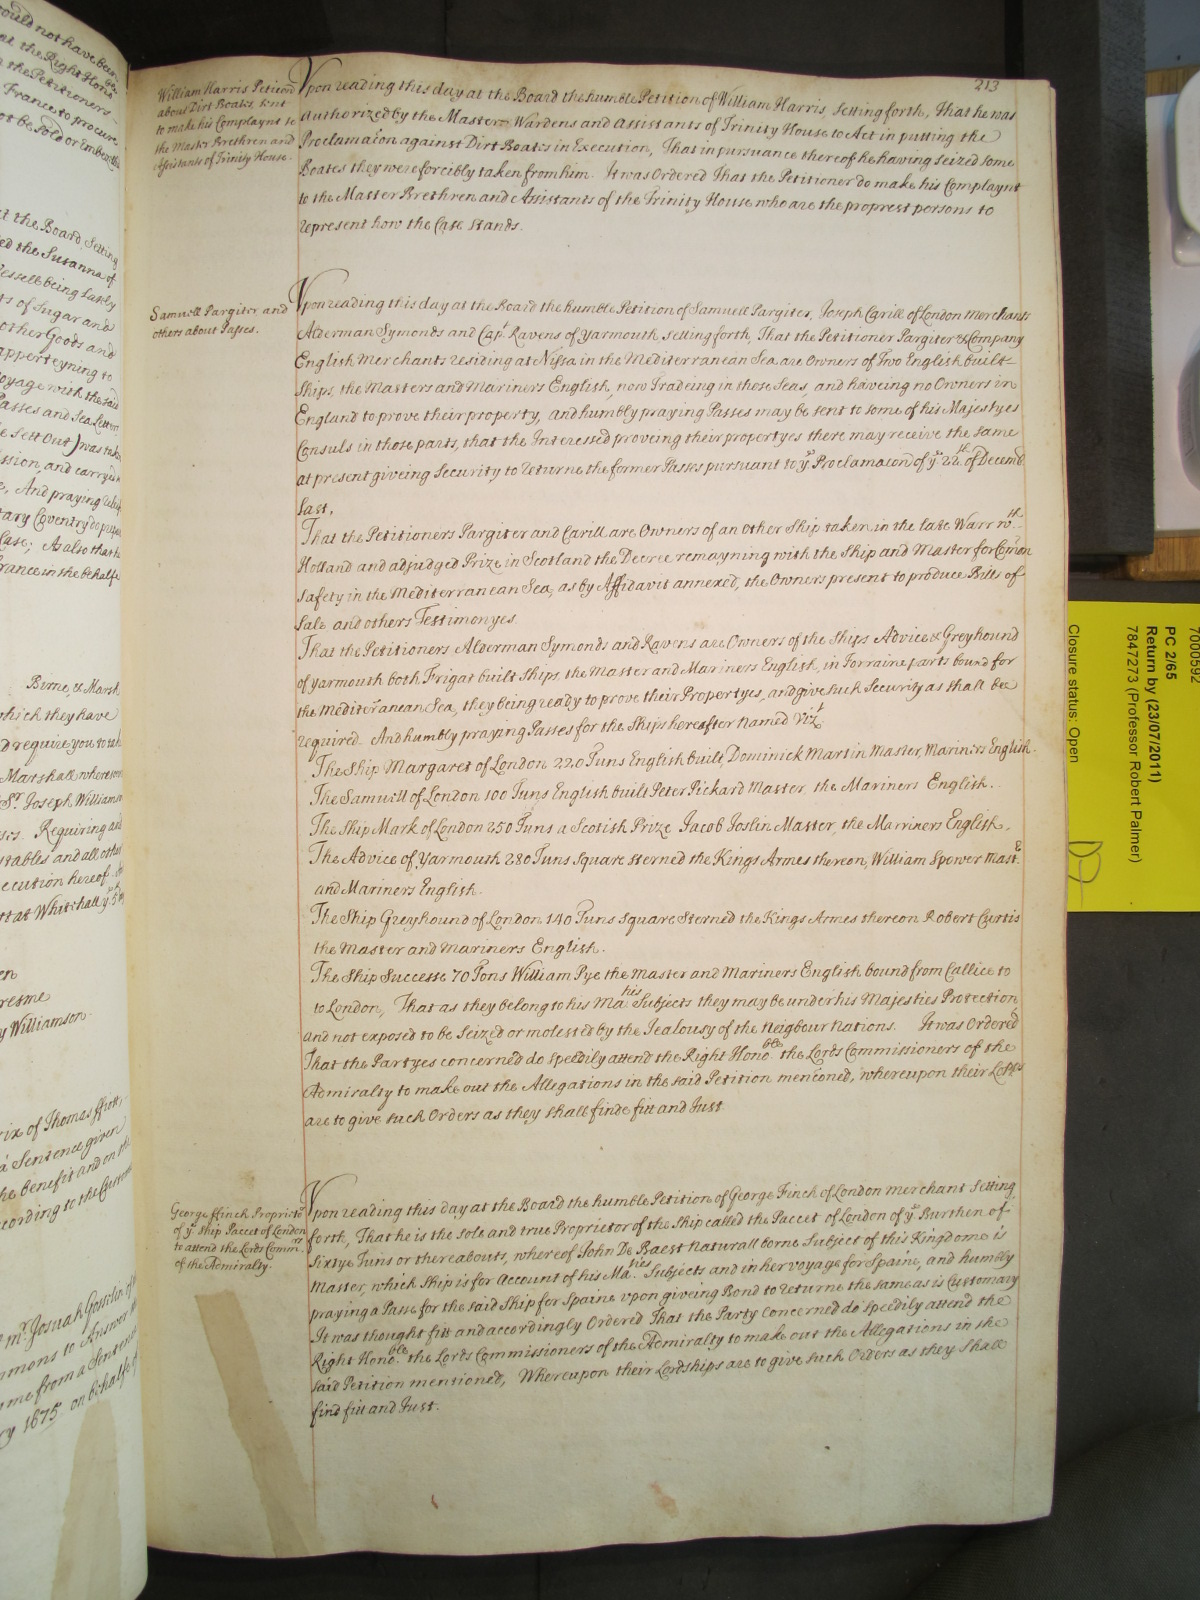 ould not have been
at the Right Hono
the Petitioners
France to procure
ot be sold or Embez
at the Board, Setting
ed the Susanna of
essell being Lately
ts of Sugar and
other Goods and
apperteyning to
oyage with the said
Passes and Sea Letters
e Sett Out) was take
ssion, and carryed
e, And praying
tary Coventry do
Case; As also that
rance in the behalfe
Birne, & Marsh
which they have
d require you to tak
Marshall
Sr. Joseph Williamson
Requiring and
stables and all other
ecution hereof
at Whitehall ye 5th
en
resme
y Williamson
rix of Thomas
a Sentence given
he benefit and on
cording to the
mr. Josuah
mmons to Answer
me from a Sentence
ry 1675 on behalfe of
213
William Harris Peticion
about Dirt Boats, sent
to make his Complaynt to
the Master Brethren and
Assistants of Trinity House.
Vpon reading this day at the Board the humble Petition of William Harris, setting forth, That he was
authorized by the Master Wardens and Assistants of Trinity House to Act in putting the
Proclamacon against Dirt Boats in Execution, That in pursuance thereof he having seized some
Boates they were forcibly taken from him. It was Ordered That the Petitioner do make his Complaynt
to the Master Brethren and Assistants of the Trinity House who are the proprest persons to
represent how the Case stands.
Samuell Pargiter and
others about Passes.
Vpon reading this day at the Board the humble Petition of Samuell Pargiter, Joseph Carill of London Merchants
Alderman Symonds and Capt. Ravens of Yarmouth, setting forth, That the Petitioner Pargiter & Company
English Merchants residing at Nissa in the Mediterranean Sea are Owners of Two English built
Ships, the Masters and Mariners English, now Tradeing in those Seas, and haveing no Owners in
England to prove their property, and humbly praying Passes may be sent to some of his Majestyes
Consuls in those parts, that the Interessed proveing their propertyes there may receive the same
at present giveing Security to returne the former Passes pursuant to ye Proclamacon of ye 22th. of Decemb.
Last,
That the Petitioners Pargiter and Carill are Owners of an other Ship taken in the late Warr wth.
Holland and adjudged Prize in Scotland the Decree remayning with the Ship and Master for Comon
safety in the Mediterranean Sea, as by Affidavit annexed, the Owners present to produce Bills of
Sale and others Testimonyes
That the Petitioners Alderman Symonds and Ravens are Owners of the Ships Advice & Greyhound
of yarmouth both Frigat built Ships, the Master and Mariners English, in Forraine parts bound for
the Mediteranean Sea, they being ready to prove their Propertyes, and give such Security as shall bee
required. And humbly praying Passes for the Ships hereafter named Vizt.
The Ship Margaret of London 220 Tuns English built, Dominick Martin Master, Mariners English.
The Samuill of London 100 Tuns English built Peter Pickard Master, the Mariners English.
The Ship Mark of London 250 Tuns a Scotish Prize Jacob Joslin Master, the Marriners English.
The Advice of Yarmouth 280 Tuns square sterned the Kings Armes thereon, William Spower Mastr.
and Mariners English.
The Ship Greyhound of London 140 Tuns square Sterned the Kings Armes thereon Robert Curtis
the Master and Mariners English.
The Ship Successe 70 Tons William Pye the Master and Mariners English bound from Callice to
to London, That as they belong to his Mathis Subjects they may be under his Majesties Protection
and not exposed to be Seized or molested by the Jealousy of the Neigbour Nations. It was Ordered
That the Partyes concerned do speedily attend the Right Honoble. the Lords Commissioners of the
Admiralty to make out the Allegations in the said Petition menconed, whereupon their Lopps
are to give such Orders as they shall finde fitt and Just
George ffinch Proprietr
of ye ship Paccet of London
to attend the Lords Commrs.
of the Admiralty.
Vpon reading this day at the Board the humble Petition of George Finch of London Merchant Setting
forth, That he is the sole and true Proprietor of the Ship called the Paccet of London of ye Burthen of
Sixtye Tuns or thereabouts, whereof John De Baest Naturall borne Subject of this Kingdome is
Master, which Ship is for Account of his Maties Subjects and in her voyage for Spaine, and humbly
praying a Passe for the said Ship for Spaine vpon giveing Bond to returne the same as is Customary
It was thought fitt and accordingly Ordered That the Party Concerned do speedily attend the
Right Honoble. the Lords Commissioners of the Admiralty to make out the Allegations in the
said Petition mentioned, Whereupon their Lordships are to give such Orders as they shall
find fitt and Just.
7000592
PC 2/65
Return by (23/07/2011)
7847273 (Professor Robert Palmer)
Closure status: Open